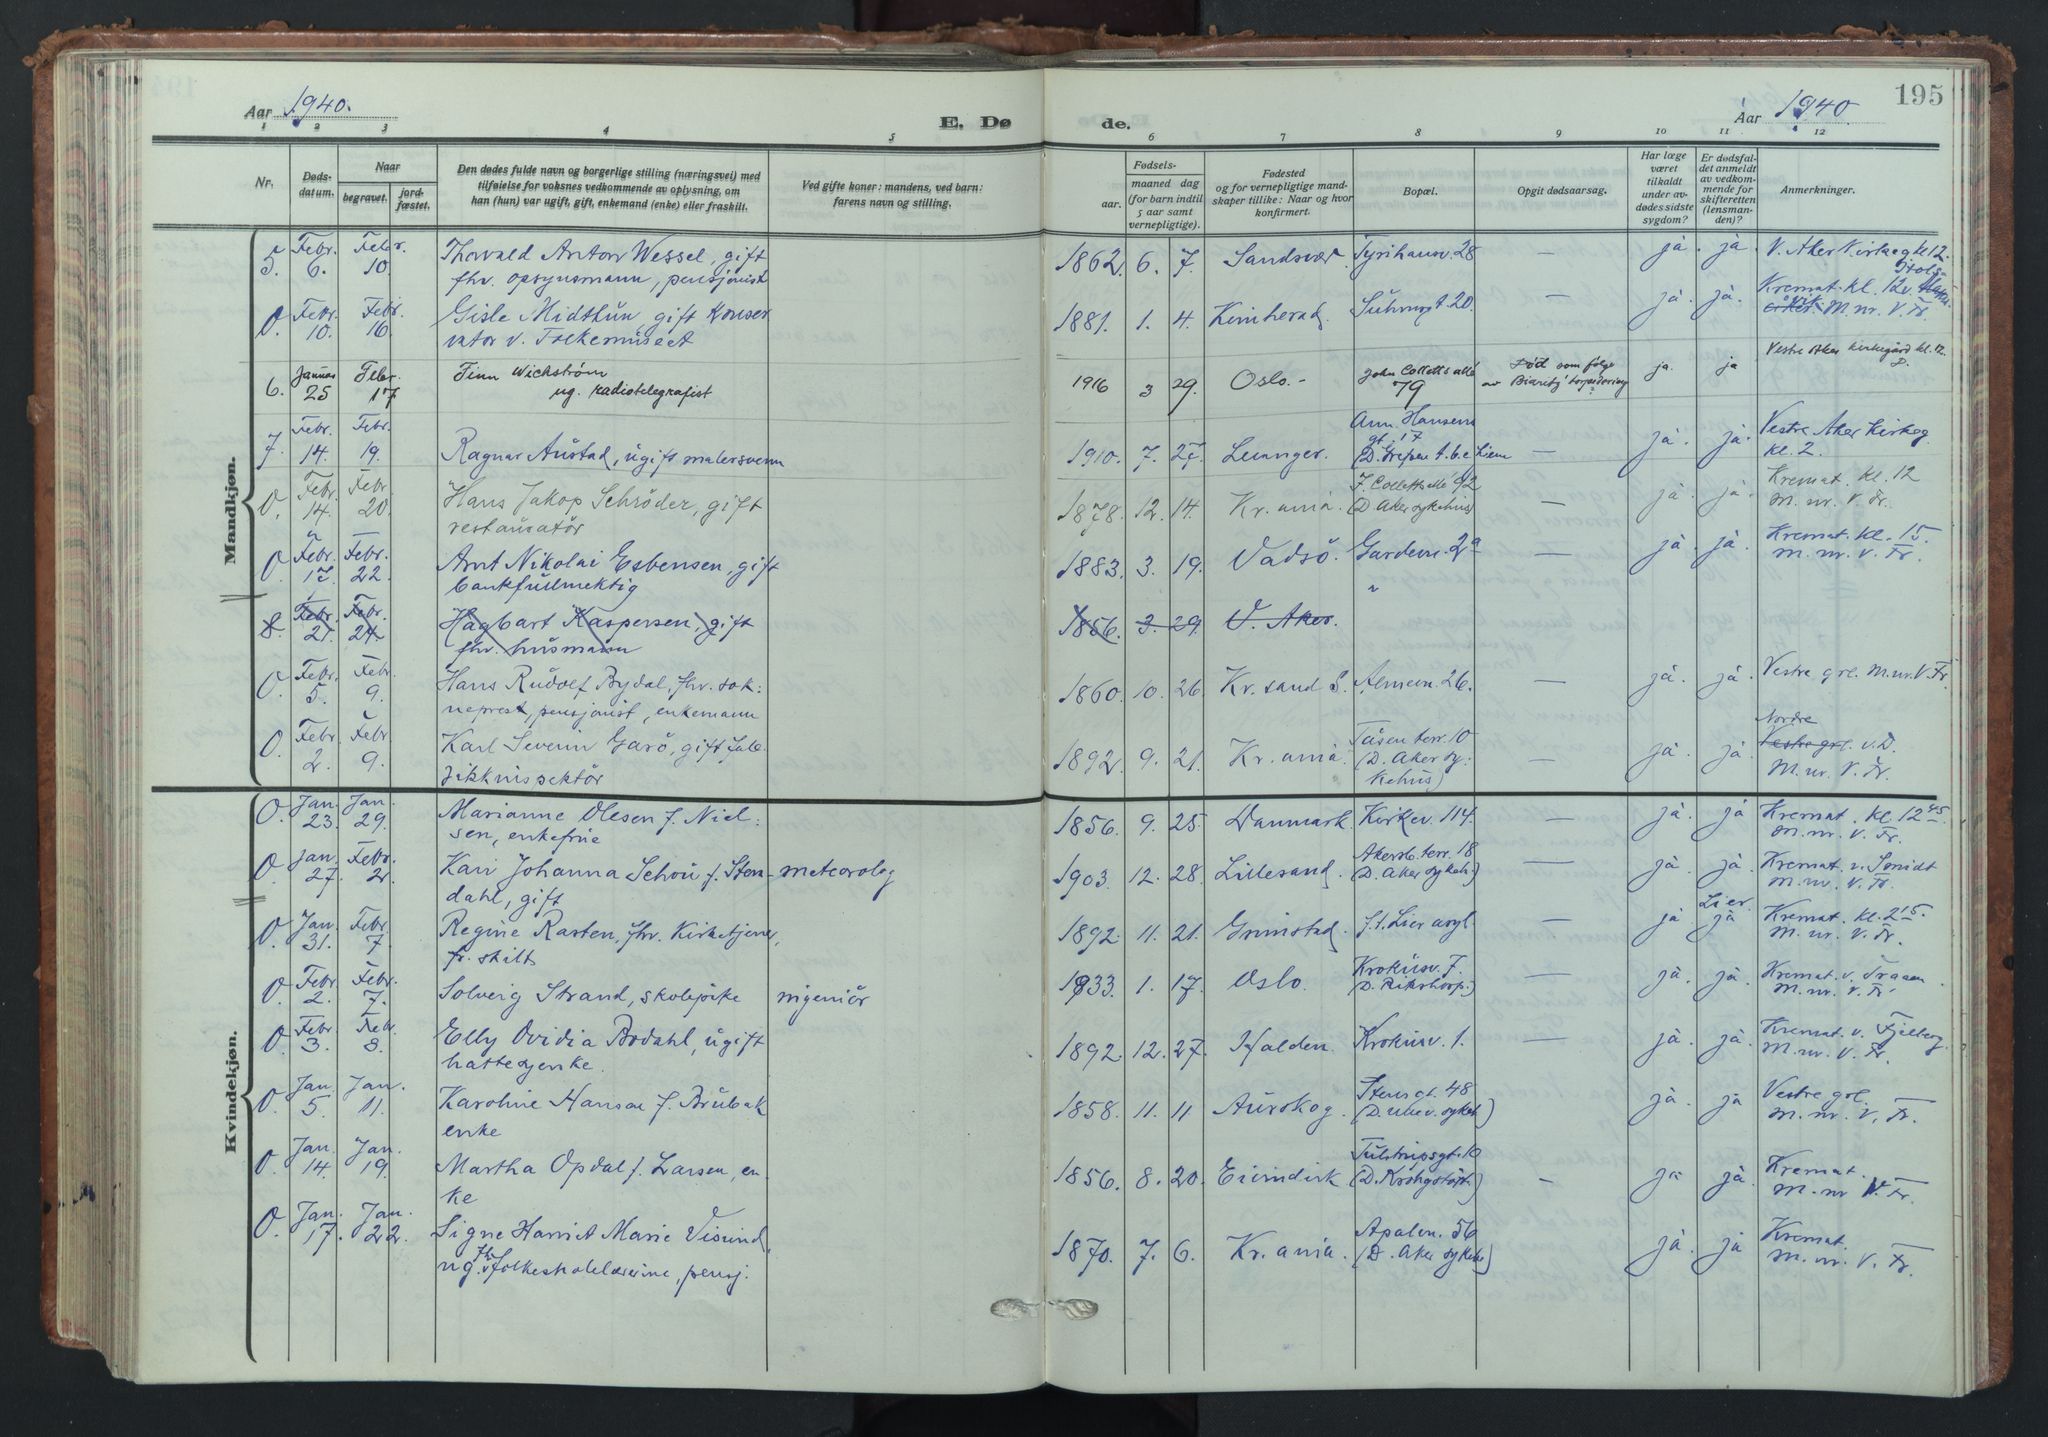 195
Aar 1940.
E. Dø
de.
Aar 1940.
1 2 3 4 5 6 7 8 9 10 11 12
Nr.
Døds-
datum.
Naar
begravet.
jord-
fæstet.
Den dødes fulde navn og borgerlige stilling (næringsvei) med
tilføielse for voksnes vedkommende av oplysning, om
han (hun) var ugift, gift, enkemand (enke) eller fraskilt.
Ved gifte koner: mandens, ved barn:
farens navn og stilling.
Fødsels-
aar.
maaned dag
(for barn indtil
5 aar samt
vernepligtige).
Fødested
og for vernepligtige mand-
skaper tillike: Naar og hvor
konfirmert.
Bopæl.
Opgit dødsaarsag.
Har læge
været
tilkaldt
under av-
dødes sidste
sygdom?
Er dødsfal-
det anmeldt
av vedkom-
mende for
skifteretten
(lensman-
den)?
Anmerkninger.
Mandkjøn.
5. Febr. 6. Febr. 10. Thorvald Anton Wessel, gift
fhv. opsynsmann, pensjonist
1862. 6. 7. Sandsvær. Tyrihansv. 28 — ja. ja. V. Aker Kirkeg kl 12.
0. Febr. 10. Febr. 16. Gisle Midthun gift Konser
vator v. Folkemuseet
1881. 1. 4. Kvinherad. Suhmsgt. 20. — ja. ja. Kremat. kl. 12 v.
M. nr. V. Fr.
6. Januar 25 Febr. 17 Finn Wichstrøm
ug. radiotelegrafist
1916 3 29. Oslo.- John Colletts allé
79
Død som følge
av Biarritz' torpedering
ja. ja Vestre Aker kirkegård kl. 12.
7. Febr. 14. Febr. 19. Ragnar Austad, ugift malersvenn
1910. 7. 27. Levanger. Am. Hansens
gt. 17
— ja. ja. Vestre Aker Kirkeg
kl. 2.
0. Febr. 14. Febr. 20. Hans Jakop Schröder, gift
restauratör
1878. 12. 14. Kr.ania. J. Colletts allé 92
(D. Aker sykehus)
— ja. ja. Kremat. kl. 12
M. nr. V. Fr.
0. Febr. 17. Febr. 22. Arnt Nikolai Esbensen, gift
bankfullmektig
1883. 3. 19. Vadsö. Gardeve. 2a — ja. ja. Kremat. kl. 15.
M. nr. V. Fr.
8. Febr. 21. Febr. 24. Hagbart Kaspersen, gift
fhv. husmann
1856. 3. 29. V. Aker.
0. Febr. 5. Febr. 9. Hans Rudolf Bydal, fhv. sok:
neprest, pensjonist, enkemann
1860. 10. 26. Kr.sand S. Almev. 26. — ja. ja. Vestre grl. M.nr. V. Fr.
0. Febr. 2. Febr. 9. Karl Severin Garö, gift fab:
rikkinspektör
1892. 9. 21. Kr.ania. Tåsen terr. 10
(D. Aker sy:
kehus)
— ja. ja. Nordre
Vestre grl. v. D.
M. nr. V. Fr.
Kvindekjøn.
0. Jan. 23. Jan. 29. Marianne Olesen f. Niel:
sen, enkefrue
1856. 9. 25. Danmark. Kirkev. 114. — ja. ja Kremat. kl. 12 45.
M. nr. V. Fr.
0. Jan. 27. Febr. 2. Kari Johanna Schou f. Sten-
dahl, gift
meteorolog
1903. 12. 28. Lillesand. Akersb. terr. 18
(D. Aker sykeh.)
— ja. ja Kremat. v. Smidt
M. nr. V. Fr.
0. Jan. 31. Febr. 7. Regine Rasten, fhv. Kirketjener,
fr. skilt
1892. 11. 21. Grimstad. f.t. Lier asyl. — ja. Lier.
ja Kremat. kl. 2 15.
M. nr. V. Fr.
0. Febr. 2. Febr. 7. Solveig Strand, skolepike
ingeniör
1933. 1. 17. Oslo. Krokusv. 7.
(D. Rikshosp.)
— ja. ja. Kremat. v. Traaen
M. nr. V. Fr.
0. Febr. 3. Febr. 8. Elly Ovidia Bodahl, ugift
hattesyerske.
1892. 12. 27. Halden. Krokusv. 1. — ja. ja. Kremat. v. Fjelberg.
M. nr. V. Fr.
0. Jan. 5. Jan. 11. Karoline Hansen f. Brubak
enke
1858. 11. 11 Aurskog. Stensgt. 48
(D. Ullev. sykeh.)
— ja. ja Vestre grl.
M. nr. V. Fr.
0. Jan. 14. Jan. 19. Martha Opdal f. Larsen, en-
ke
1856. 8. 20. Eivindvik Tulstrupsgt. 10
- ja. ja. Kremat.
M. nr V. Fr.
0. Jan. 17. Jan. 22. Signe Harriet Marie Visund,
ug. fhv folkeskolelærerinne, pensj.
1870. 7. 6. Kr.ania. Apalv. 56
(D. Aker sykeh.)
ja. ja Kremat.
M. nr. V. Fr.